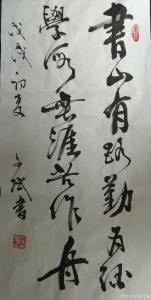 書山有路勤為徑
學海無涯苦作舟
戊戌初夏
文斌書